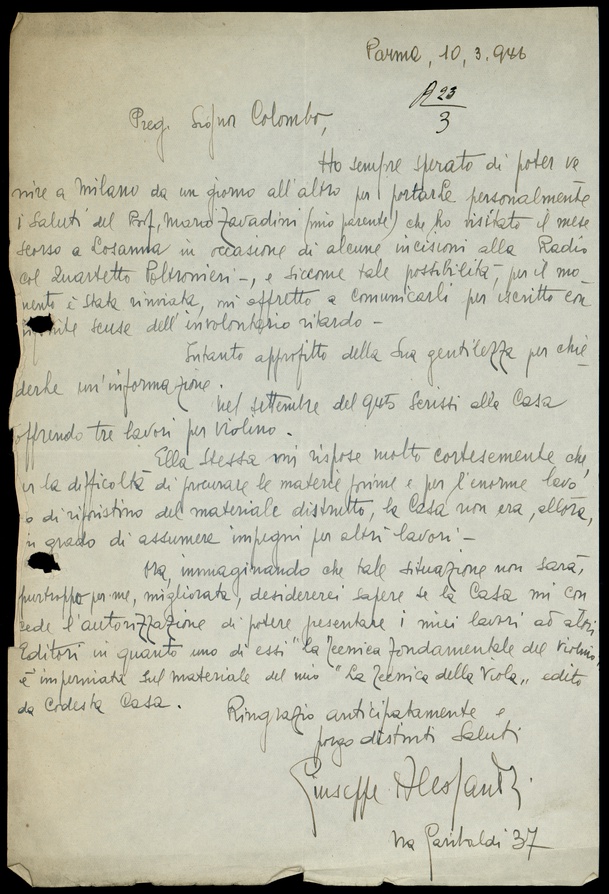 Parma, 10, 3. 946
R 23
3
Preg. Signor Colombo,
Ho sempre sperato di poter ve
nire a Milano da un giorno all'altro per portarLe personalmente
i Saluti del Prof. Mario Zavadini (mio parente) che ho visitato il mese
scorso a Losanna in occasione di alcune incisioni alla Radio
col Quartetto Poltronieri -, e siccome tale possibilità, per il mo-
mento è stata rinviata, mi affretto a comunicarli per iscritto con
infinite scuse dell'involontario ritardo -
Intanto approfitto della Sua gentilezza per chie-
derle un'informazione.
Nel settembre del 945 scrissi alla Casa
offrendo tre lavori per violino.
Ella Stessa mi rispose molto cortesemente che,
per la difficoltà di procurare le materie prime e per l'enorme lavo
ro di ripristino del materiale distrutto, la Casa non era, allora,
in grado di assumere impegni per altri lavori -
Ora, immaginando che tale situazione non sarà,
purtroppo per me, migliorata, desidererei sapere se la Casa mi con
cede l'autorizzazione di potere presentare i miei lavori ad altri
Editori in quanto uno di essi "La Tecnica fondamentale del Violino"
è imperniata sul materiale del mio "La Tecnica della Viola" edito
da codesta Casa.
Ringrazio anticipatamente e
porgo distinti Saluti
Giuseppe Alessandri
Via Garibaldi 37